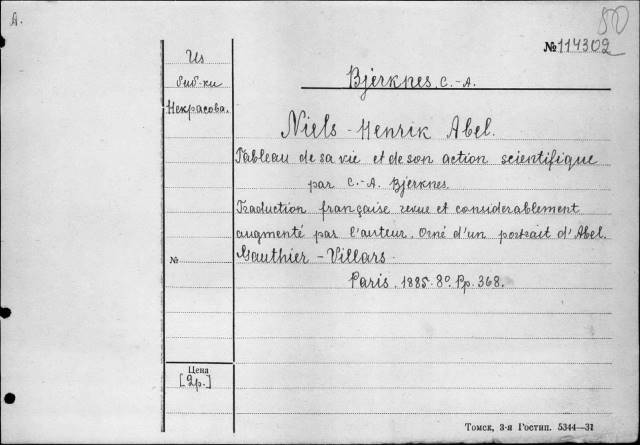 А.
50
№ 114302
Из
биб-ки
Некрасова.
Bjerknes, C.-A.
Niels-Henrik Abel.
Tableau de sa vie et de son action scientifique
par C.-A. Bjerknes.
Traduction française revue et considerablement
augmenté par l'auteur. Orné d'un portrait d'Abel.
№
Gauthier-Villars.
Paris. 1885. 8º. Pp. 368.
Цена
[2р.]
Томск, 3-я Гостип. 5344—31